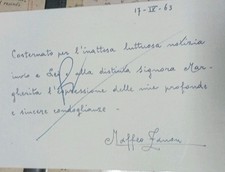 17-IX-63
Costernato per l'inattesa luttuosa notizia
invio a Lei e alla distinta signora Mar-
gherita l'espressione delle mie profonde
e sincere condoglianze.
Maffeo